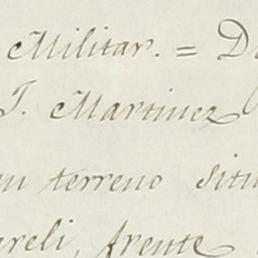 Militar. = D
T. Martinez
un terreno situ
reli, frente